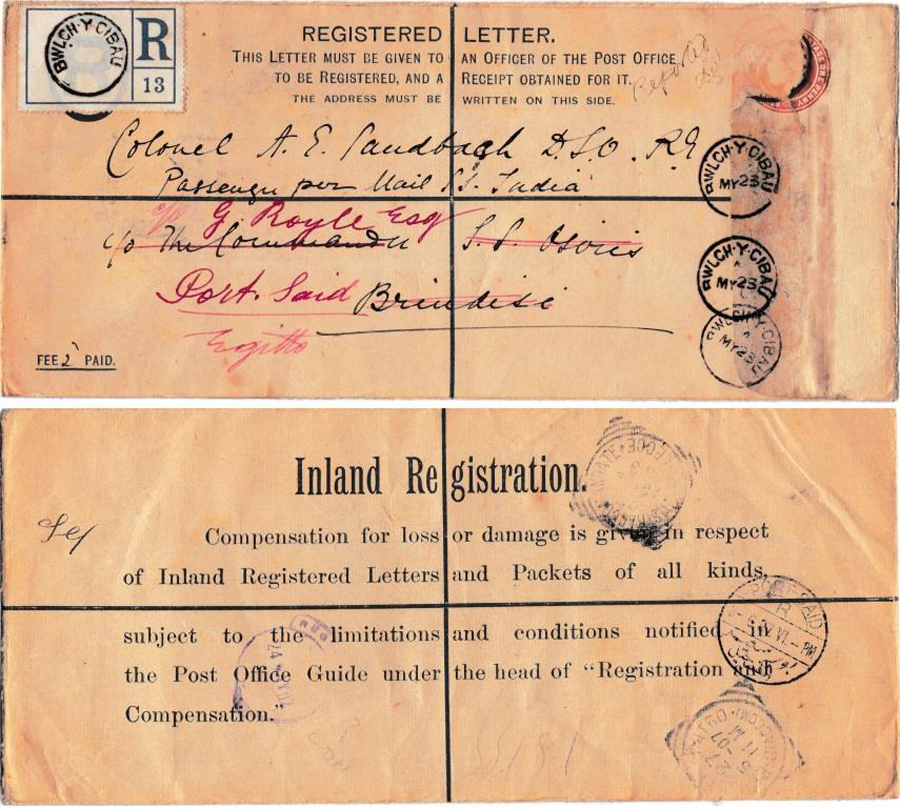 BWLCH·Y·CIBAU
R
13
REGISTERED LETTER.
THIS LETTER MUST BE GIVEN TO AN OFFICER OF THE POST OFFICE
TO BE REGISTERED, AND A RECEIPT OBTAINED FOR IT.
THE ADDRESS MUST BE WRITTEN ON THIS SIDE.
ONE PENNY
Colonel A. E. Sandbach D.S.O. R.E
Passenger per Mail S.S. India
c/o G. Royle Esq
c/o The Commander S.S. Osiris
Port. Said Brindisi
Egitto
FEE 2 PAID.
BWLCH·Y·CIBAU
MY 23
BWLCH·Y·CIBAU
MY 23
BWLCH·Y·CIBAU
MY 23
Inland Registration.
Compensation for loss or damage is given in respect
of Inland Registered Letters and Packets of all kinds,
subject to the limitations and conditions notified in
the Post Office Guide under the head of "Registration and
Compensation.
PORT SAID
R
VI - PM
27
5-07
11 M